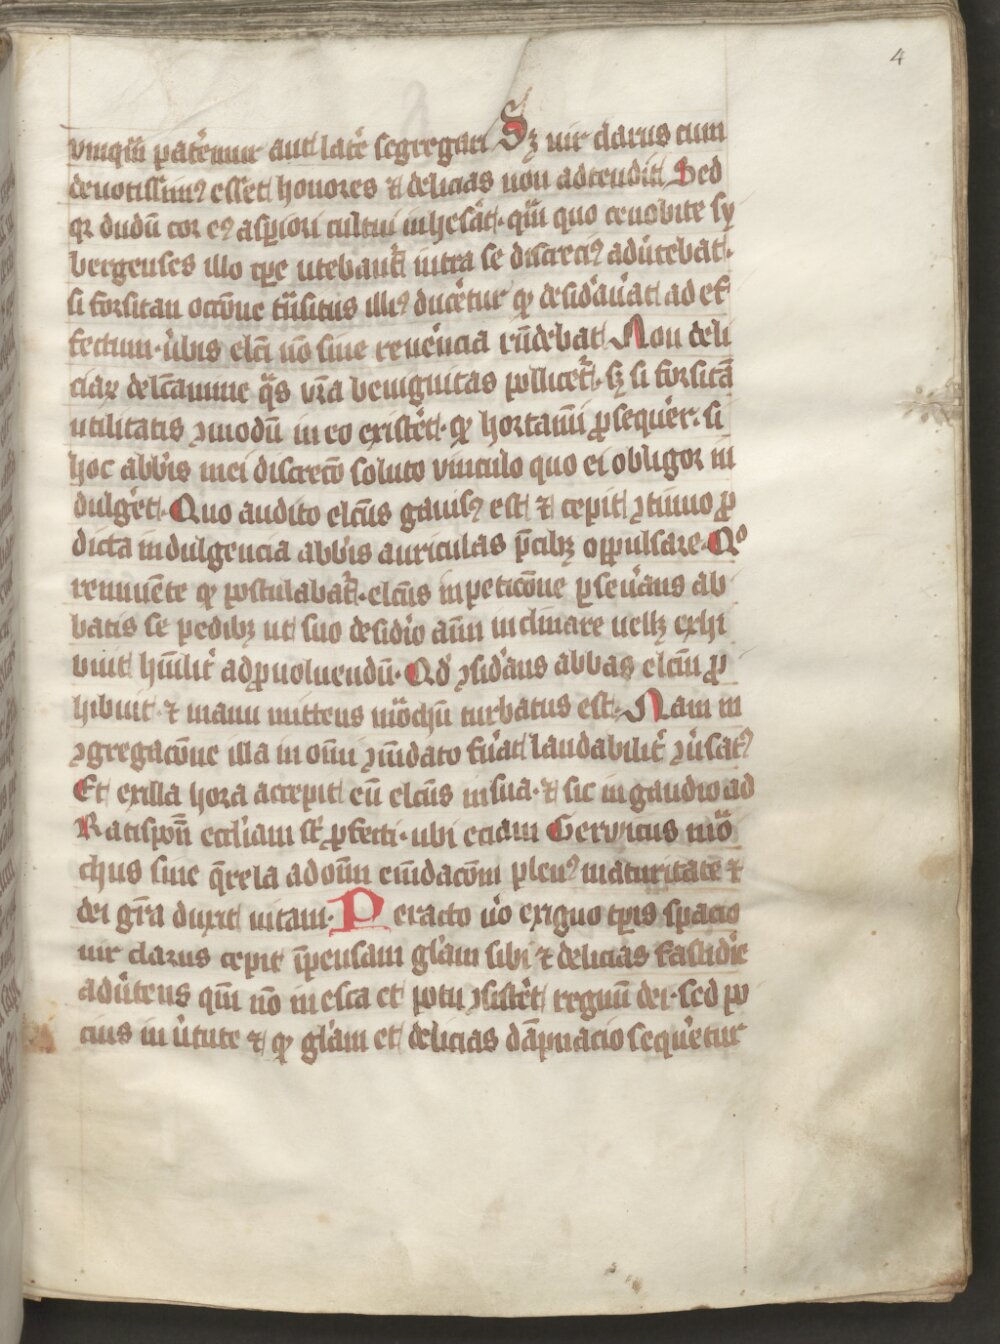 4
vnuqu̅ pat̓emur aut late̓ segregari Sꝫ uir clarus cum
deuotissimꝰ esset honores ⁊ delicias non adtendit Sed
qꝛ dudu̅ cor eꝰ asp̲iori cultui inhesa̓t· qu̅ quo cenobite sy
bergenses illo tp̲e utebant᷑ intra se discreciꝰ adu̓tebat·
si forsitan occo̅ne tn̅situs illiꝰ duce̓tur qͥ desid̓aua̓t ad ef
fectum· u̓bis elc̅i no̅ sine reue̓ncia rn̅debat Non deli
ciaꝝ delc̅amine qͣs vr̅a benignitas pollicet᷑· sꝫ si forsita̅
utilitatis ꝯmodu̅ in eo existe̓t· qͥ hortam̅i ꝓseque̓r· si
hoc abb̅is mei discreto̅ soluto vinculo quo ei obligor in
dulge̓t· Quo audito elc̅us gauisꝰ est ⁊ cepit ꝯtinuo p̲
dicta indulgencia abb̅is auriculas p̅cibꝫ opp̲ulsare· Qͦ
rennue̅te qͥ postulabat᷑· elc̅us in petico̅ne p̲seu̓ans ab
batis se pedibꝫ ut suo desid̓io an̅m inclinare uellꝫ exhi
buit hu̅ilit᷑ adꝓuoluendu̅· Qd̓ ꝯsid̓ans abbas elc̅m ꝓ
hibuit· ⁊ manu mittens mo̅chu̅ turbatus est· Nam in
ꝯgregaco̅ne illa in om̅i ꝯm̅dato fu̓at laudabilit᷑ ꝯu̓satꝰ
Et exilla hora accepit eu̅ elc̅us in sua· ⁊ sic in gaudio ad
Ratispon̅ eccl̓iam st̅ p̲fecti· ubi eciam Gervicus mo̅
chus sine q̅rela ad om̅m em̅daco̅m plenꝰ maturitate̅ ⁊
dei gr̅a duxit uitam· Peracto u̓o exiguo tp̲is spacio
uir clarus cepit ip̅ensam gl̓am sibi ⁊ delicias fastidi̓e
adu̓tens qm̅ no̅ in esca et potu ꝯsiste̓t regnu̅ dei· sed po
cius in u̓tute ⁊ qͥ gl̓am et delicias da̅pnacio seque̓tur